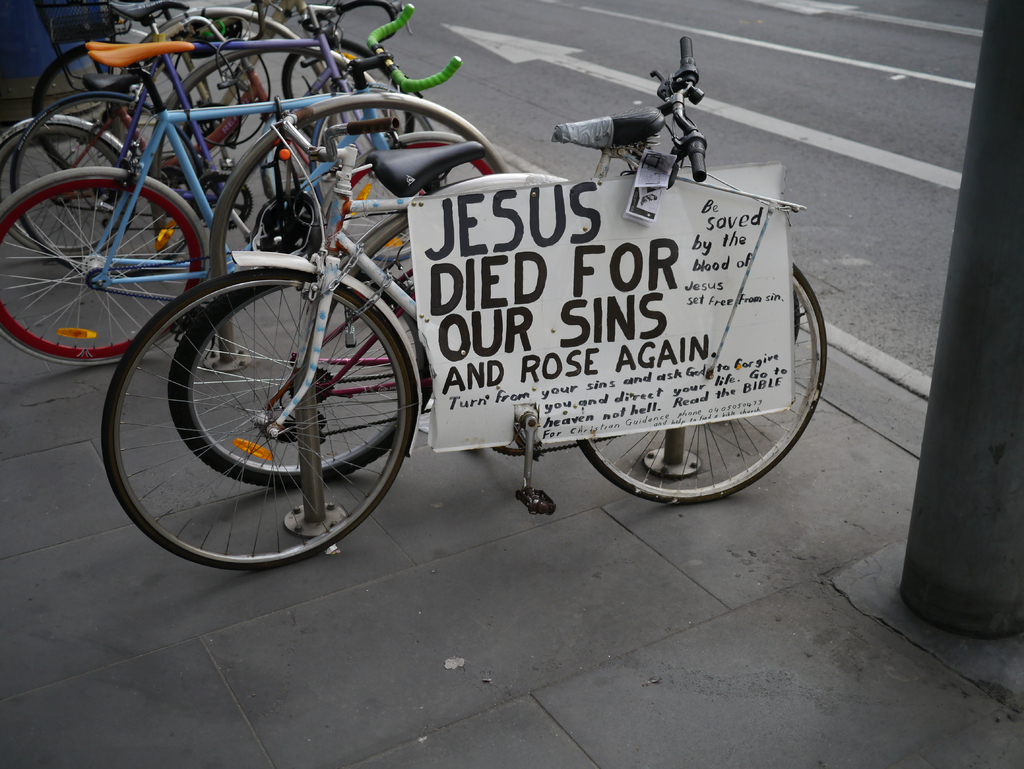 JESUS
DIED FOR
OUR SINS
AND ROSE AGAIN.
Be
saved
by the
blood of
Jesus
set free from sin.
Turn from your sins and ask God to forgive
you and direct your life. Go to
heaven not hell. Read the BIBLE
For Christian Guidance phone 0405050473
and help to find a bible church